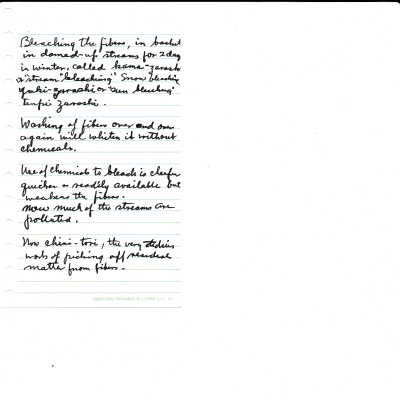 Bleaching the fibers, in basket
in damed-up streams for 2 days
in winter, called kawa-zarashi
or "stream bleaching" Snow bleaching
yuki-zarashi or "sun bleaching"
tenpi zarashi.
Washing of fibers over and over
again will whiten it without
chemicals.
Use of chemicals to bleach is cheaper
quicker & readily available but
weakens the fibers.
Now much of the streams are
polluted.
Now chiri-tori, the very tedious
work of picking off residual
matter from fibers.